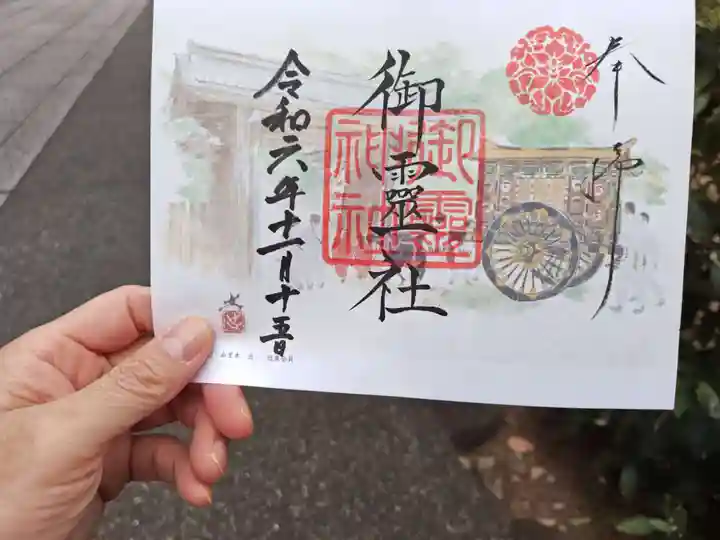 奉拝
御靈社
御靈神社
令和六年十一月十五日